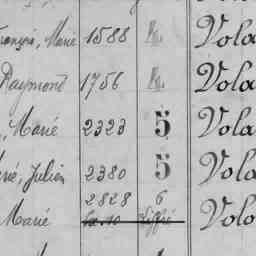 François, Marie 1588 Vola
Raymond 1756 Vola
, Marié 2323 5 Vola
rié, Julien 2380 5 Vola
2828 6
Marié Volo